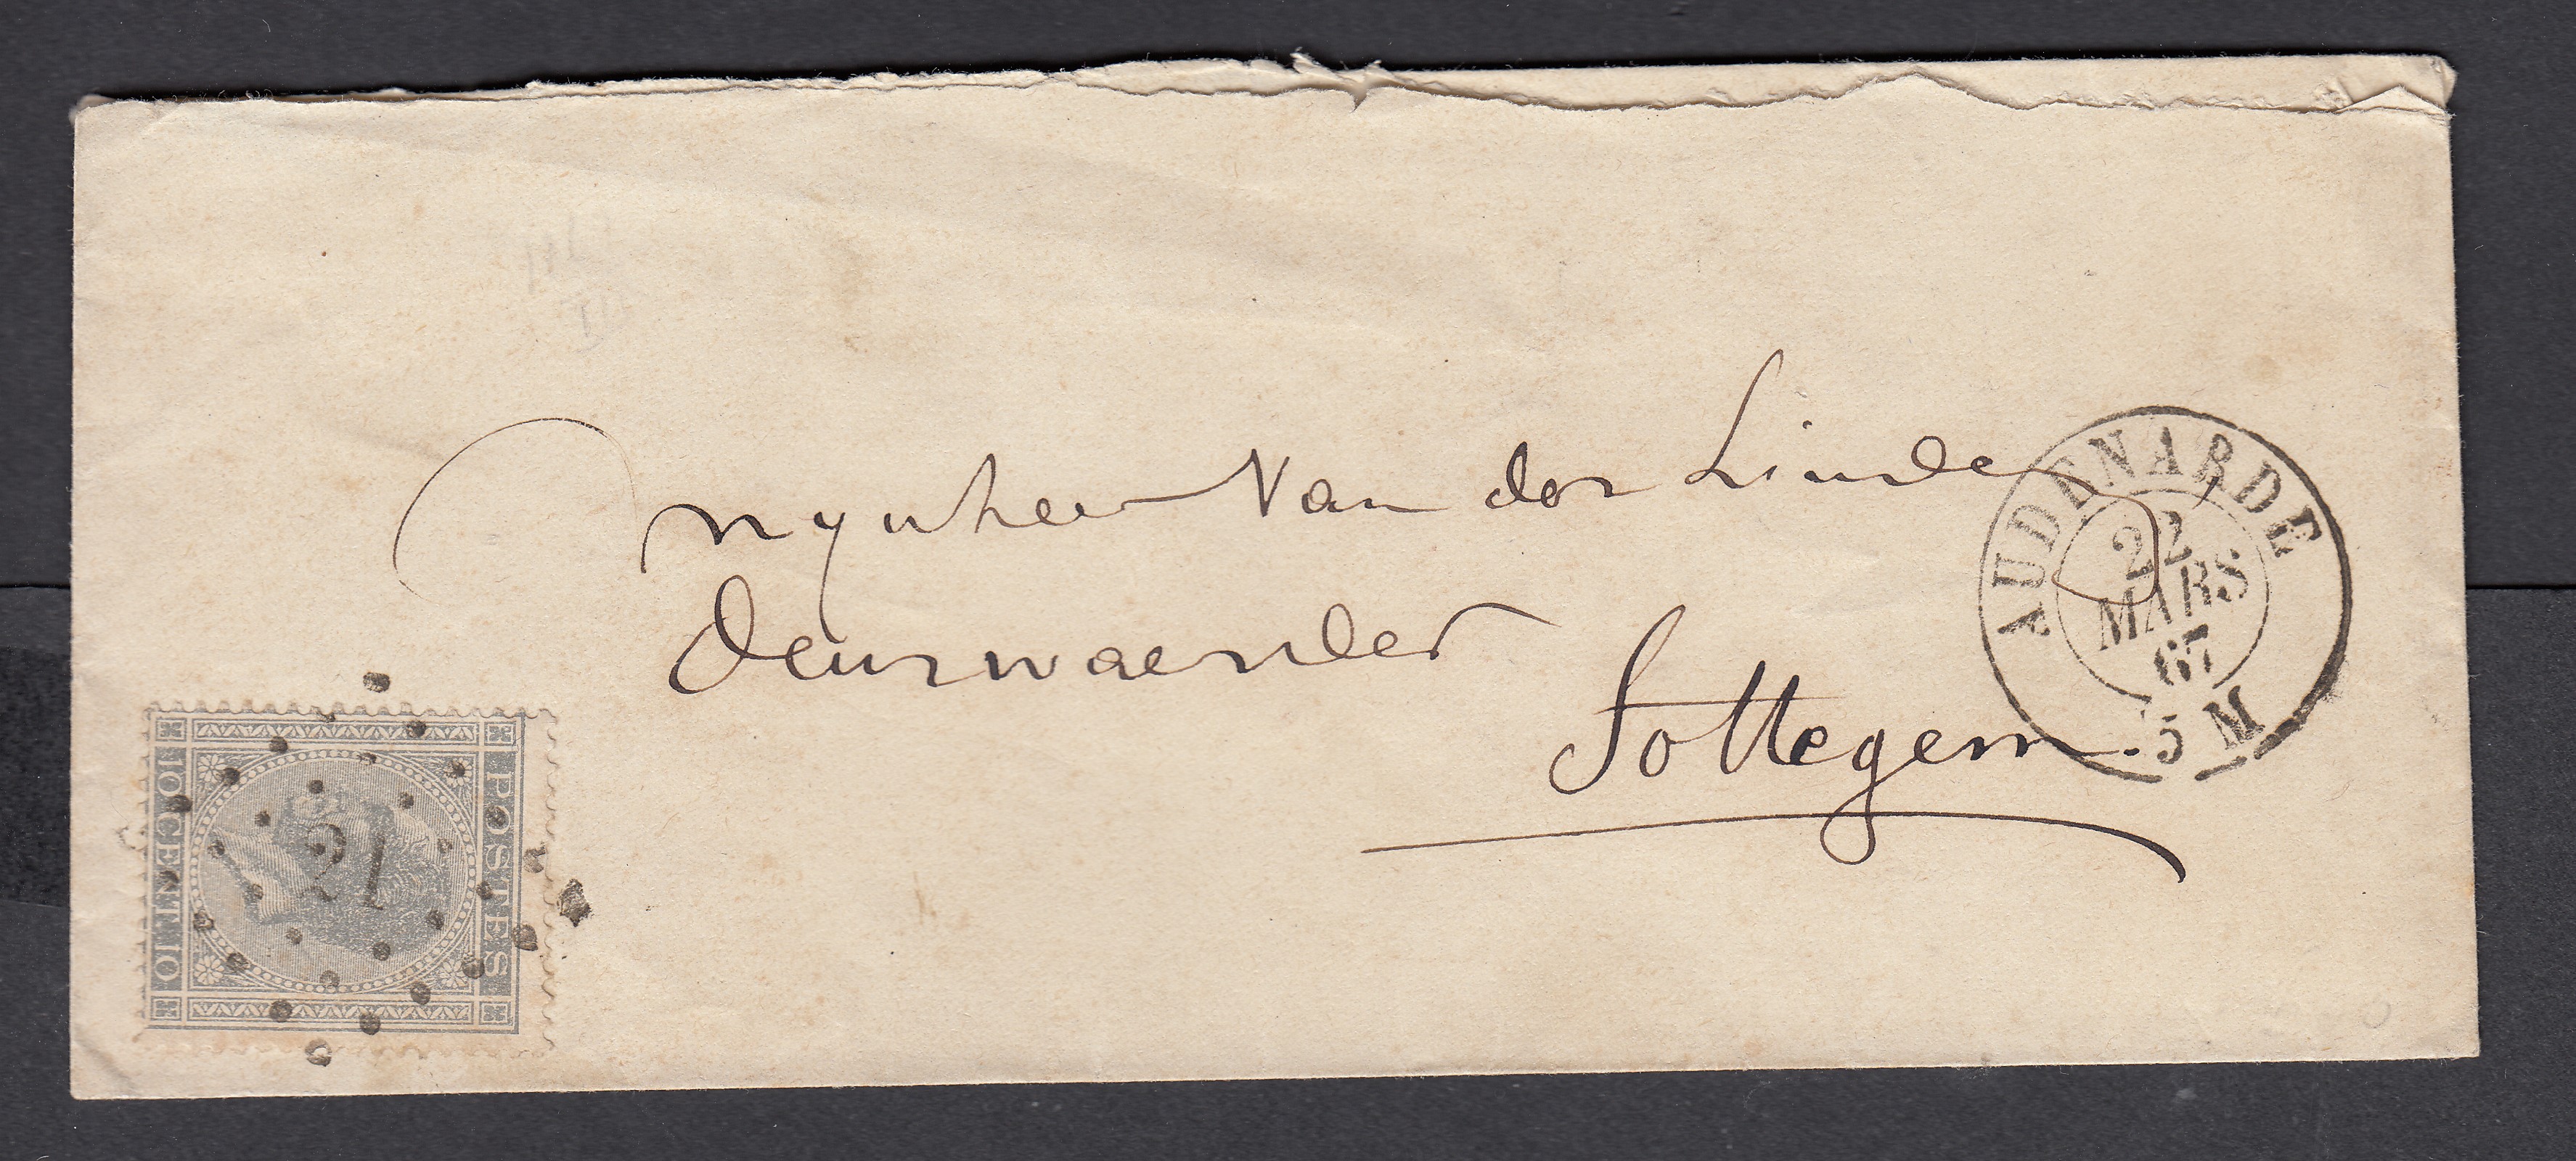 Mynheer Van der Linden
Deurwaerder
Sottegem.
AUDENARDE
22
MARS
67
5 M
POSTES
10 CENT. 10
21